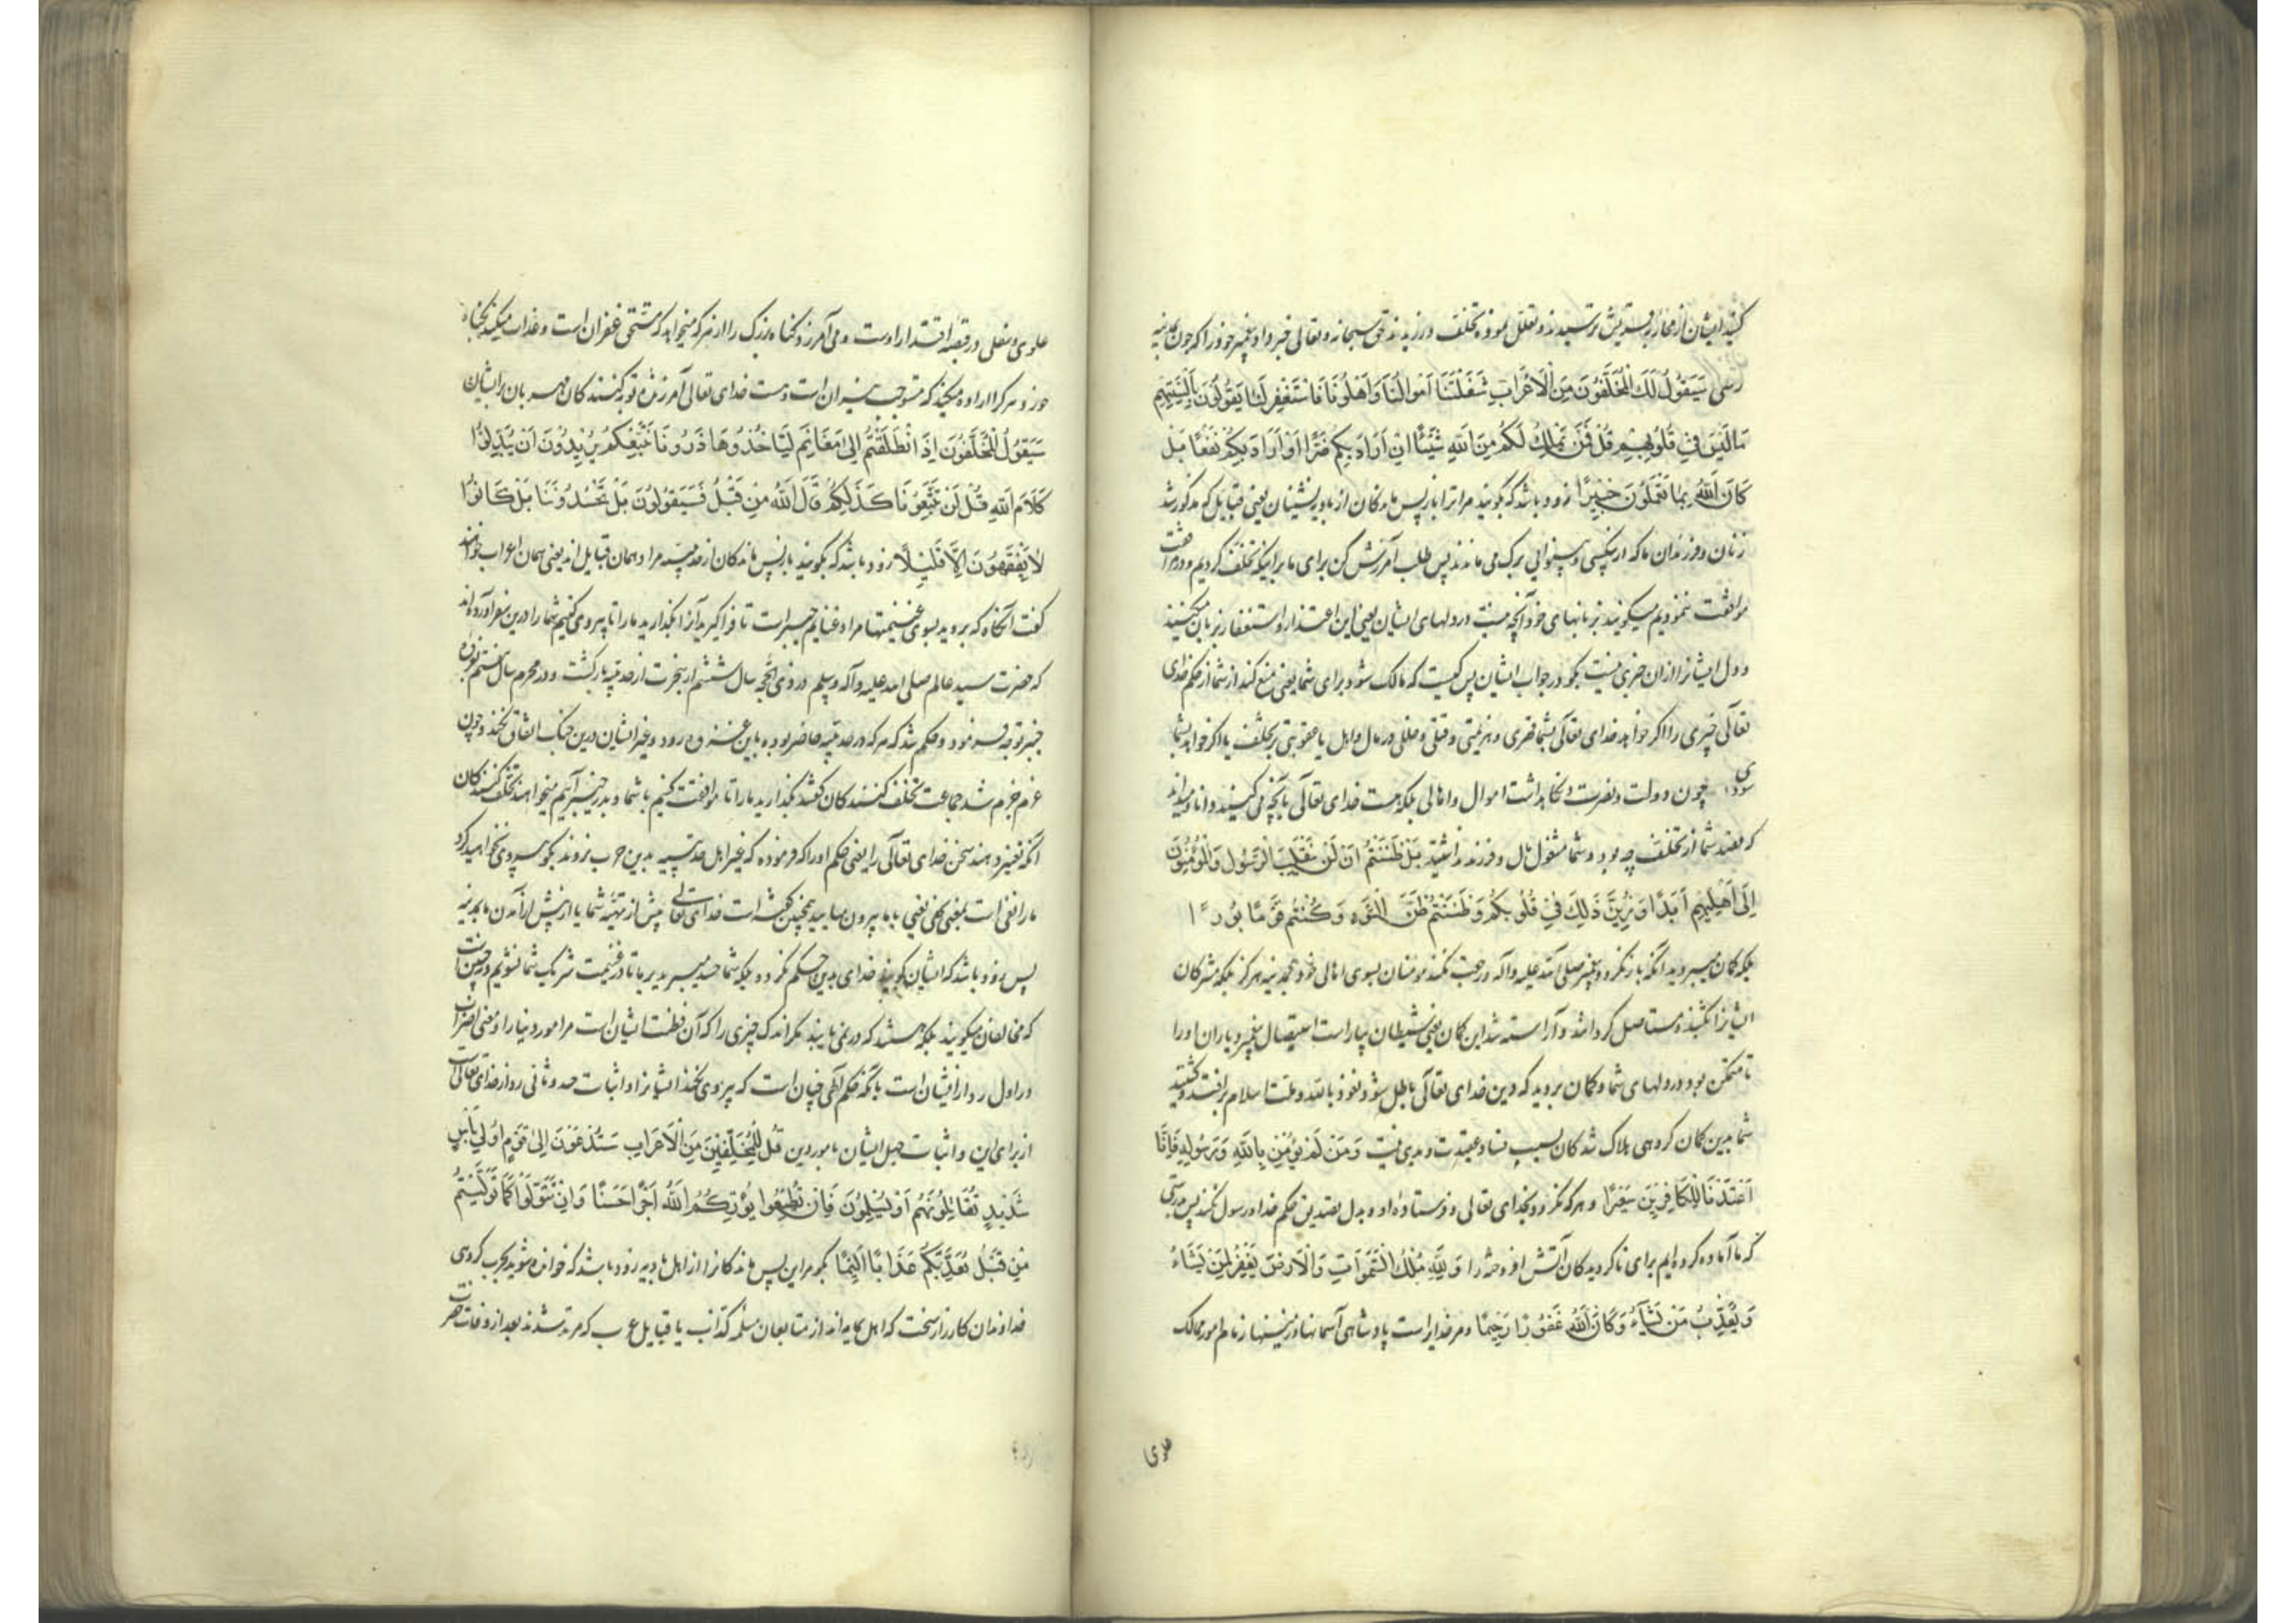 کنید ایشان از محاربه قریش ترسیدند و تعلل نموده تخلف ورزیدند حق سبحانه و تعالی خبر داد پیغمبر خود را که چون بمدینه
رسی سَيَقُولُ لَكَ الْمُخَلَّفُونَ مِنَ الْأَعْرَابِ شَغَلَتْنَا أَمْوَالُنَا وَأَهْلُونَا فَاسْتَغْفِرْ لَنَا يَقُولُونَ بِأَلْسِنَتِهِمْ
مَا لَيْسَ فِي قُلُوبِهِمْ قُلْ فَمَنْ يَمْلِكُ لَكُمْ مِنَ اللَّهِ شَيْئًا إِنْ أَرَادَ بِكُمْ ضَرًّا أَوْ أَرَادَ بِكُمْ نَفْعًا بَلْ
كَانَ اللَّهُ بِمَا تَعْمَلُونَ خَبِيرًا زود باشد که گویند مر ترا باز پس ماندکان از بادیه نشینان یعنی قبایل که مذکور شد
زنان و فرزندان ما که از بیکسی و بینوایی برک می ماندند پس طلب آمرزش کن برای ما برانیکه تخلف کردیم و در مرافقت
موافقت ننمودیم میگویند بزبانهای خود آنچه نیست در دلهای ایشان یعنی این اعتذار و استغفار بزبان میکنند
و دل ایشانرا ازان خبری نیست بگو در جواب ایشان پس کیست که مالک شود برای شما یعنی منع کند از شما از حکم خدای
تعالی چیزی را اگر خواهد خدای تعالی بشما ضرری و هزیمتی و قتلی و خللی در مال و اهل یا عقوبتی بر تخلف یا اگر خواهد بشما
سودی چون دولت و نصرت و نگاهداشت اموال و اهالی بلکه هست خدای تعالی بآنچه می کنید دانا و میداند
که قصد شما از تخلف چه بود و شما مشغول مال و فرزند نباشید بَلْ ظَنَنْتُمْ أَنْ لَنْ يَنْقَلِبَ الرَّسُولُ وَالْمُؤْمِنُونَ
إِلَى أَهْلِيهِمْ أَبَدًا وَزُيِّنَ ذَلِكَ فِي قُلُوبِكُمْ وَظَنَنْتُمْ ظَنَّ السَّوْءِ وَكُنْتُمْ قَوْمًا بُورًا
بلکه گمان میبردید آنکه باز نگردد پیغمبر صلی الله علیه وآله و رجعت نکنند مومنان بسوی اهالی خود بمدینه هرگز بلکه مشرکان
ایشانرا بکشند و مستاصل گردانند و آراسته شد این گمان یعنی شیطان بیاراست استیصال پیغمبر و یاران او را
تا متمکن بود در دلهای شما و گمان بردید که دین خدای تعالی باطل شود نعوذ بالله و ملت اسلام برافتد و گشتید
شما بدین گمان گروهی هلاک شدگان بسبب فساد عقیدت و بدی نیت وَمَنْ لَمْ يُؤْمِنْ بِاللَّهِ وَرَسُولِهِ فَإِنَّا
أَعْتَدْنَا لِلْكَافِرِينَ سَعِيرًا و هر که نگرود بخدای تعالی و فرستاده او و بدل تصدیق حکم خدا و رسول نکند پس بدرستی
که ما آماده کرده ایم برای ناگرویدگان آتش افروخته را وَلِلَّهِ مُلْكُ السَّمَوَاتِ وَالْأَرْضِ يَغْفِرُ لِمَنْ يَشَاءُ
وَيُعَذِّبُ مَنْ يَشَاءُ وَكَانَ اللَّهُ غَفُورًا رَحِيمًا و مر خدایراست پادشاهی آسمانها و زمینها زمام امور ممالک
علوی
علوی و سفلی در قبضه اقتدار اوست و می آمرزد گناه بزرگ را از هر که میخواهد که مستحق غفران است و عذاب میکند بگناه
خورد هر کرا اراده میکند که مستوجب نیران است و هست خدای تعالی آمرزنده توبه کنندکان مهربان برایشان
سَيَقُولُ الْمُخَلَّفُونَ إِذَا انْطَلَقْتُمْ إِلَى مَغَانِمَ لِتَأْخُذُوهَا ذَرُونَا نَتَّبِعْكُمْ يُرِيدُونَ أَنْ يُبَدِّلُوا
كَلَامَ اللَّهِ قُلْ لَنْ تَتَّبِعُونَا كَذَلِكُمْ قَالَ اللَّهُ مِنْ قَبْلُ فَسَيَقُولُونَ بَلْ تَحْسُدُونَنَا بَلْ كَانُوا
لَا يَفْقَهُونَ إِلَّا قَلِيلًا زود باشد که بگویند باز پس ماندکان از حدیبیه مراد همان قبایل اند یعنی همان اعراب خواهند
گفت آنگاه که بروید بسوی غنیمتها مراد غنایم خیبر است تا فرا گیرید آنرا بگذارید ما را تا پیروی کنیم شما را درین سفر آورده اند
که حضرت سید عالم صلی الله علیه وآله وسلم در ذی الحجه سال ششم از هجرت از حدیبیه بازگشت و در محرم سال هفتم بغزوه
خیبر توجه فرمود و حکم شد که هر که در حدیبیه حاضر بوده باین غزوه رود و غیر ایشان درین جنک اتفاق نکند و چون
عزم جزم شد جماعت تخلف کنندکان گفتند بگذارید ما را تا موافقت کنیم با شما و بدر خیبر آییم میخواهند تخلف کنندکان
آنکه تغییر دهند سخن خدای تعالی را یعنی حکم او را که فرموده که غیر اهل حدیبیه بدین حرب نروند بگو پیروی نخواهید کرد
ما را نفی است بمعنی نهی یعنی با ما بیرون میایید همچنین گفته است خدای تعالی پیش از تهیه شما یا از پیش از آمدن ما بمدینه
پس زود باشد که ایشان گویند خدای بدین حکم نکرده بلکه شما حسد میبرید بر ما تا در غنیمت شریک شما نشویم و نه چنین است
که مخالفان میگویند بلکه هستند که در نمی یابند مگر اندک چیزی را که آن فطنت ایشان است مر امور دنیا را و معنی اضراب
در اول رد از ایشان است بآنکه حکم الهی چنان است که پیروی نکنند ایشانرا و اثبات حسد و ثانی رد از خدای تعالی است
از برای این و اثبات جهل ایشان بامور دین قُلْ لِلْمُخَلَّفِينَ مِنَ الْأَعْرَابِ سَتُدْعَوْنَ إِلَى قَوْمٍ أُولِي بَأْسٍ
شَدِيدٍ تُقَاتِلُونَهُمْ أَوْ يُسْلِمُونَ فَإِنْ تُطِيعُوا يُؤْتِكُمُ اللَّهُ أَجْرًا حَسَنًا وَإِنْ تَتَوَلَّوْا كَمَا تَوَلَّيْتُمْ
مِنْ قَبْلُ يُعَذِّبْكُمْ عَذَابًا أَلِيمًا بگو مر این پس ماندکانرا از اهل بادیه زود باشد که خوانده شوید بحرب گروهی
خداوندان کارزار سخت که اهل یمامه اند از متابعان مسیلمه کذاب یا قبایل عرب که مرتد شدند بعد از وفات حضرت